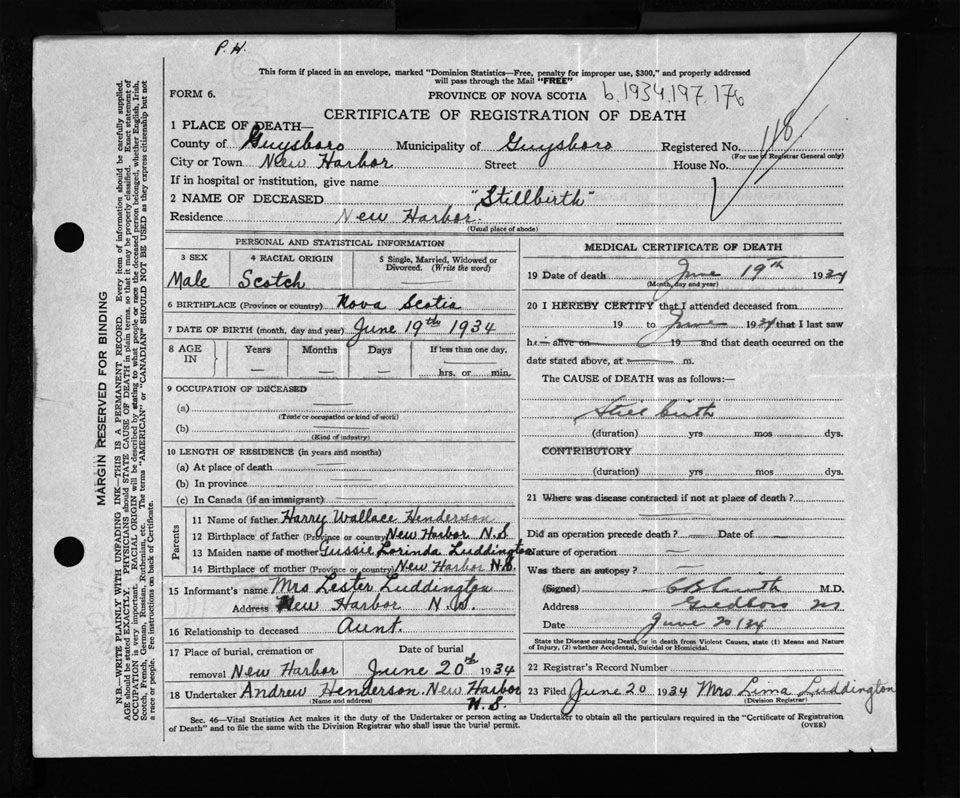 P. H.
This form if placed in an envelope, marked "Dominion Statistics—Free, penalty for improper use, $300," and properly addressed
will pass through the Mail "FREE"
FORM 6.
PROVINCE OF NOVA SCOTIA b.1934.197.176
CERTIFICATE OF REGISTRATION OF DEATH
118
1 PLACE OF DEATH—
County of Guysboro Municipality of Guysboro Registered No.
(For use of Registrar General only)
City or Town New Harbor Street House No.
If in hospital or institution, give name
2 NAME OF DECEASED "Stillbirth"
Residence New Harbor.
(Usual place of abode)
PERSONAL AND STATISTICAL INFORMATION
3 SEX 4 RACIAL ORIGIN 5 Single, Married, Widowed or
Divorced. (Write the word)
Male Scotch
6 BIRTHPLACE (Province or country) Nova Scotia
7 DATE OF BIRTH (month, day and year) June 19th 1934
8 AGE IN Years Months Days If less than one day,
— — — hrs. or min.
9 OCCUPATION OF DECEASED
(a)
(Trade or occupation or kind of work)
(b)
(Kind of industry)
10 LENGTH OF RESIDENCE (in years and months)
(a) At place of death
(b) In province
(c) In Canada (if an immigrant)
Parents
11 Name of father Harry Wallace Henderson
12 Birthplace of father (Province or country) New Harbor N.S
13 Maiden name of mother Gussie Lorinda Luddington
14 Birthplace of mother (Province or country) New Harbor N.S.
15 Informant's name Mrs Lester Luddington
Address New Harbor N.S.
16 Relationship to deceased Aunt.
17 Place of burial, cremation or Date of burial
removal New Harbor June 20th 1934
18 Undertaker Andrew Henderson New Harbor
(Name and address) N.S.
MEDICAL CERTIFICATE OF DEATH
19 Date of death June 19th 1934
(Month, day and year)
20 I HEREBY CERTIFY that I attended deceased from
19 to June 1934 that I last saw
h — alive on 19 — and that death occurred on the
date stated above, at m.
The CAUSE OF DEATH was as follows:—
Still birth
(duration) yrs mos dys.
CONTRIBUTORY
(duration) yrs mos dys.
21 Where was disease contracted if not at place of death?
Did an operation precede death? — Date of —
Nature of operation —
Was there an autopsy? —
(Signed) M.D.
Address Goldboro NS
Date June 20 / 34
State the Disease causing Death, or in death from Violent Causes, state (1) Means and Nature
of Injury, (2) whether Accidental, Suicidal or Homicidal.
22 Registrar's Record Number
23 Filed June 20 1934 Mrs Lima Luddington
(Division Registrar)
Sec. 46—Vital Statistics Act makes it the duty of the Undertaker or person acting as Undertaker to obtain all the particulars required in the "Certificate of Registration
of Death" and to file the same with the Division Registrar who shall issue the burial permit. (OVER)
MARGIN RESERVED FOR BINDING
N.B.—WRITE PLAINLY WITH UNFADING INK—THIS IS A PERMANENT RECORD. Every item of information should be carefully supplied.
AGE should be stated EXACTLY. PHYSICIANS should STATE CAUSE OF DEATH in plain terms, so that it may be properly classified. Exact statement of
OCCUPATION is very important. RACIAL ORIGIN will be described by stating to what people or race the deceased person belonged, whether English, Irish,
Scotch, French, German, Russian, Ruthenian, etc. The terms "AMERICAN" or "CANADIAN" SHOULD NOT BE USED as they express citizenship but not
a race or people. See instructions on back of Certificate.